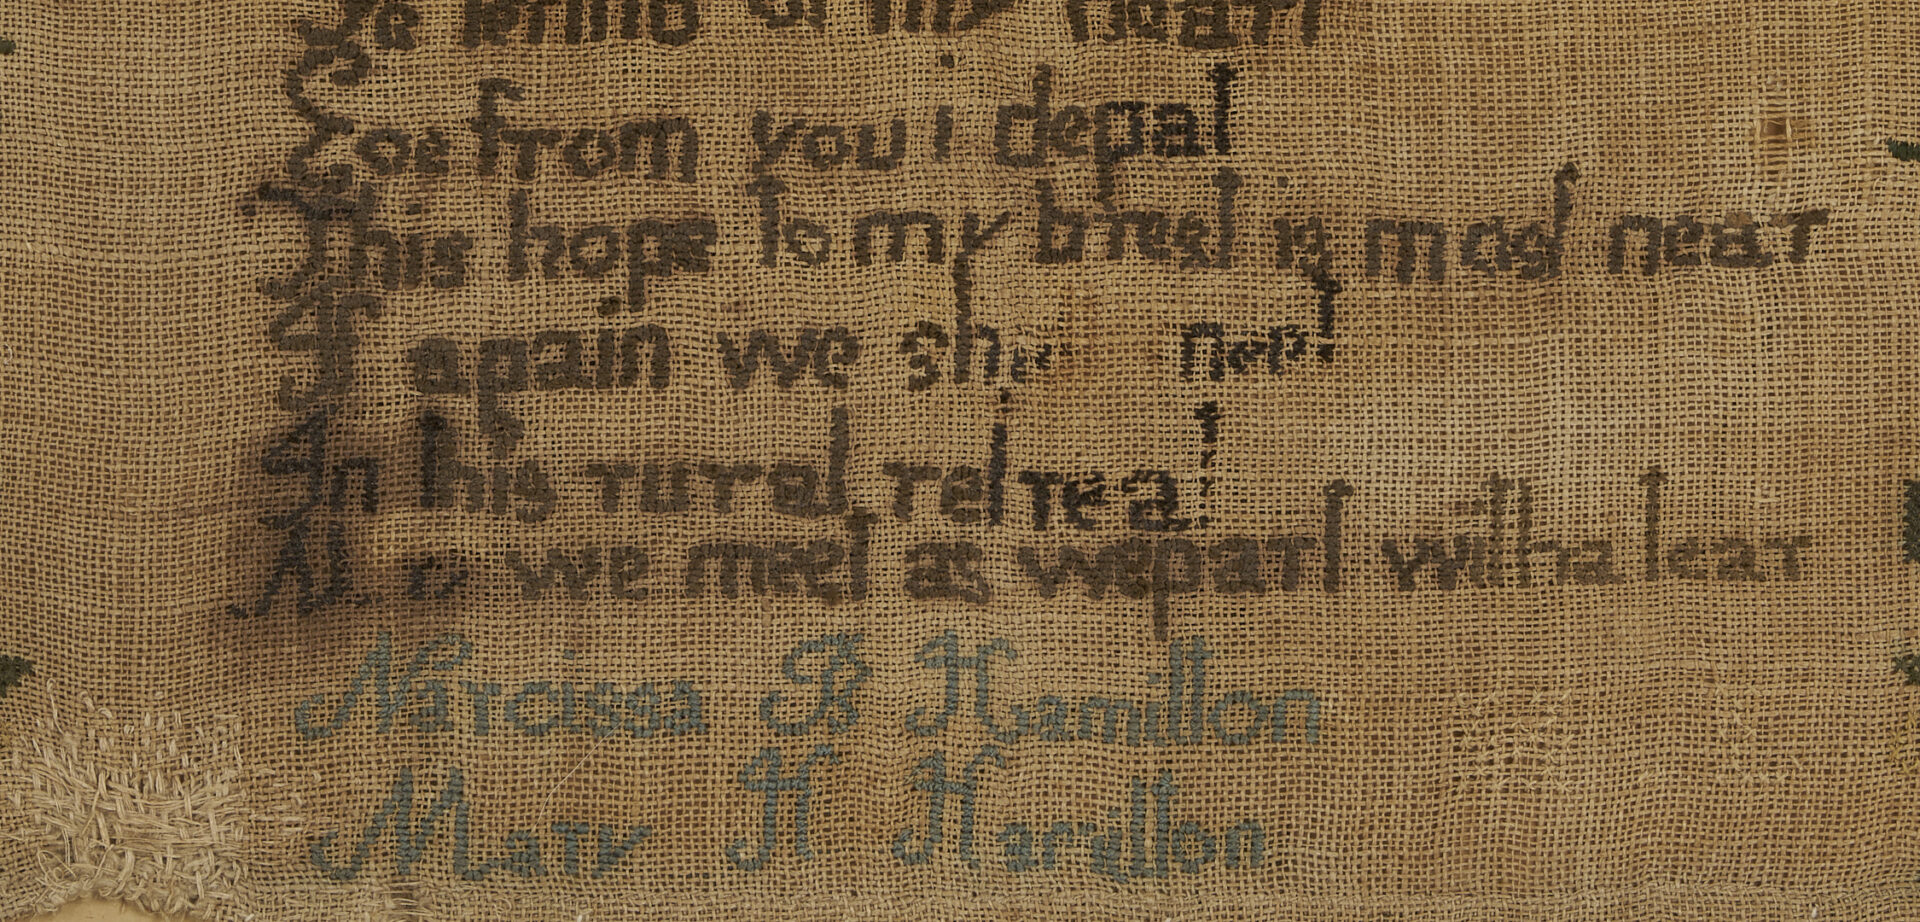 Ye of my heart
Eoe from you i depat
This hope to my brest is most near
If again we
In this rural retreat
we meet as wepart witha tear
Narcissa B Hamilton
Mary H Hamilton